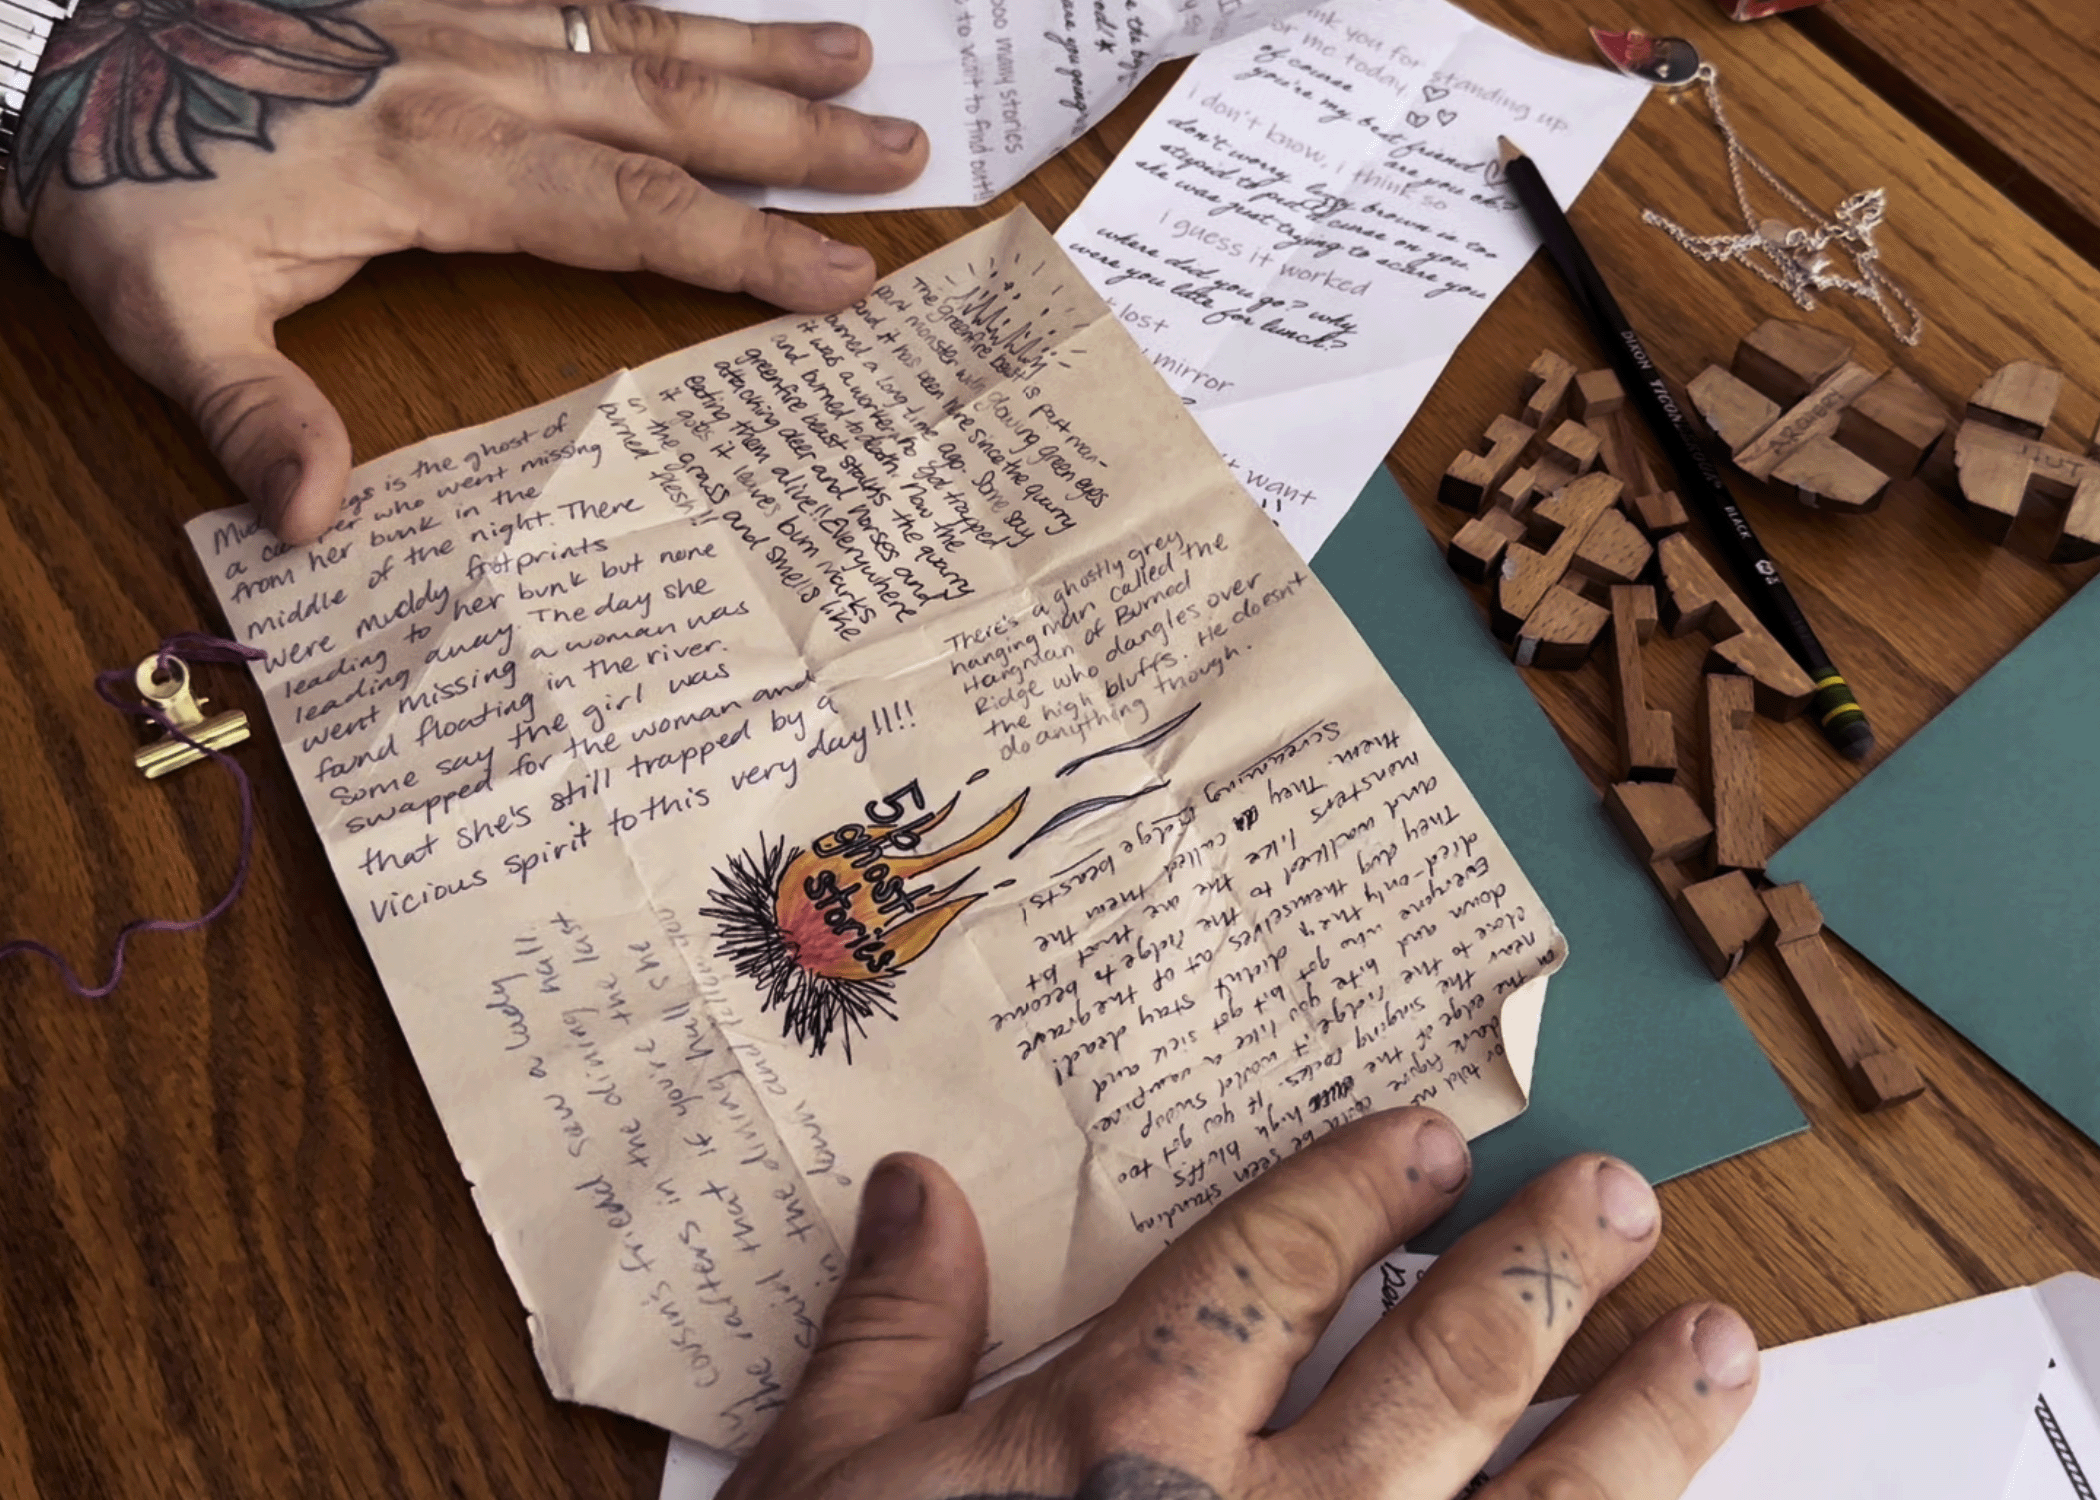 Mud egs is the ghost of
a camper who went missing
from her bunk in the
middle of the night. There
were muddy footprints
leading to her bunk but none
leading away. The day she
went missing a woman was
found floating in the river.
Some say the girl was
swapped for the woman and
that she's still trapped by a
vicious spirit to this very day!!!!
The greenfire beast is part man-
part monster with glowing green eyes
and it has been here since the quarry
burned a long time ago. Some say
it was a worker who got trapped
and burned to death. Now the
greenfire beast stalks the quarry
attacking deer and horses and
eating them alive!! Everywhere
it goes it leaves burn marks
in the grass and smells like
burned flesh!!
There's a ghostly grey
hanging man called the
Hangman of Burned
Ridge who dangles over
the high bluffs. He doesn't
do anything though.
5b
ghost
stories
told us
dark figure could be seen standing
on the edge of the high bluffs
near the singing rocks. If you got too
close to the ridge it would swoop
down and bite you like a vampire.
Everyone who got bit got sick and
died-only they didn't stay dead!
They dug themselves out of the grave
and walked to the ridge to become
monsters like the one that bit
them. They called them the
Screaming Ridge beasts!
cousin's friend saw a lady
the rafters in the dining hall.
said that if you're the last
in the dining hall she
down and follow you
nk you for standing up
or me today
of course
you're my best friend
are you ok?
i don't know, i think so
don't worry. lizzy brown is too
stupid to put a curse on you
she was just trying to scare you
i guess it worked
where did you go? why
were you late for lunch?
t lost
mirror
t want
ooo many stories
to wait to find out!!
are you going
DIXON TICONDEROGA
BLACK